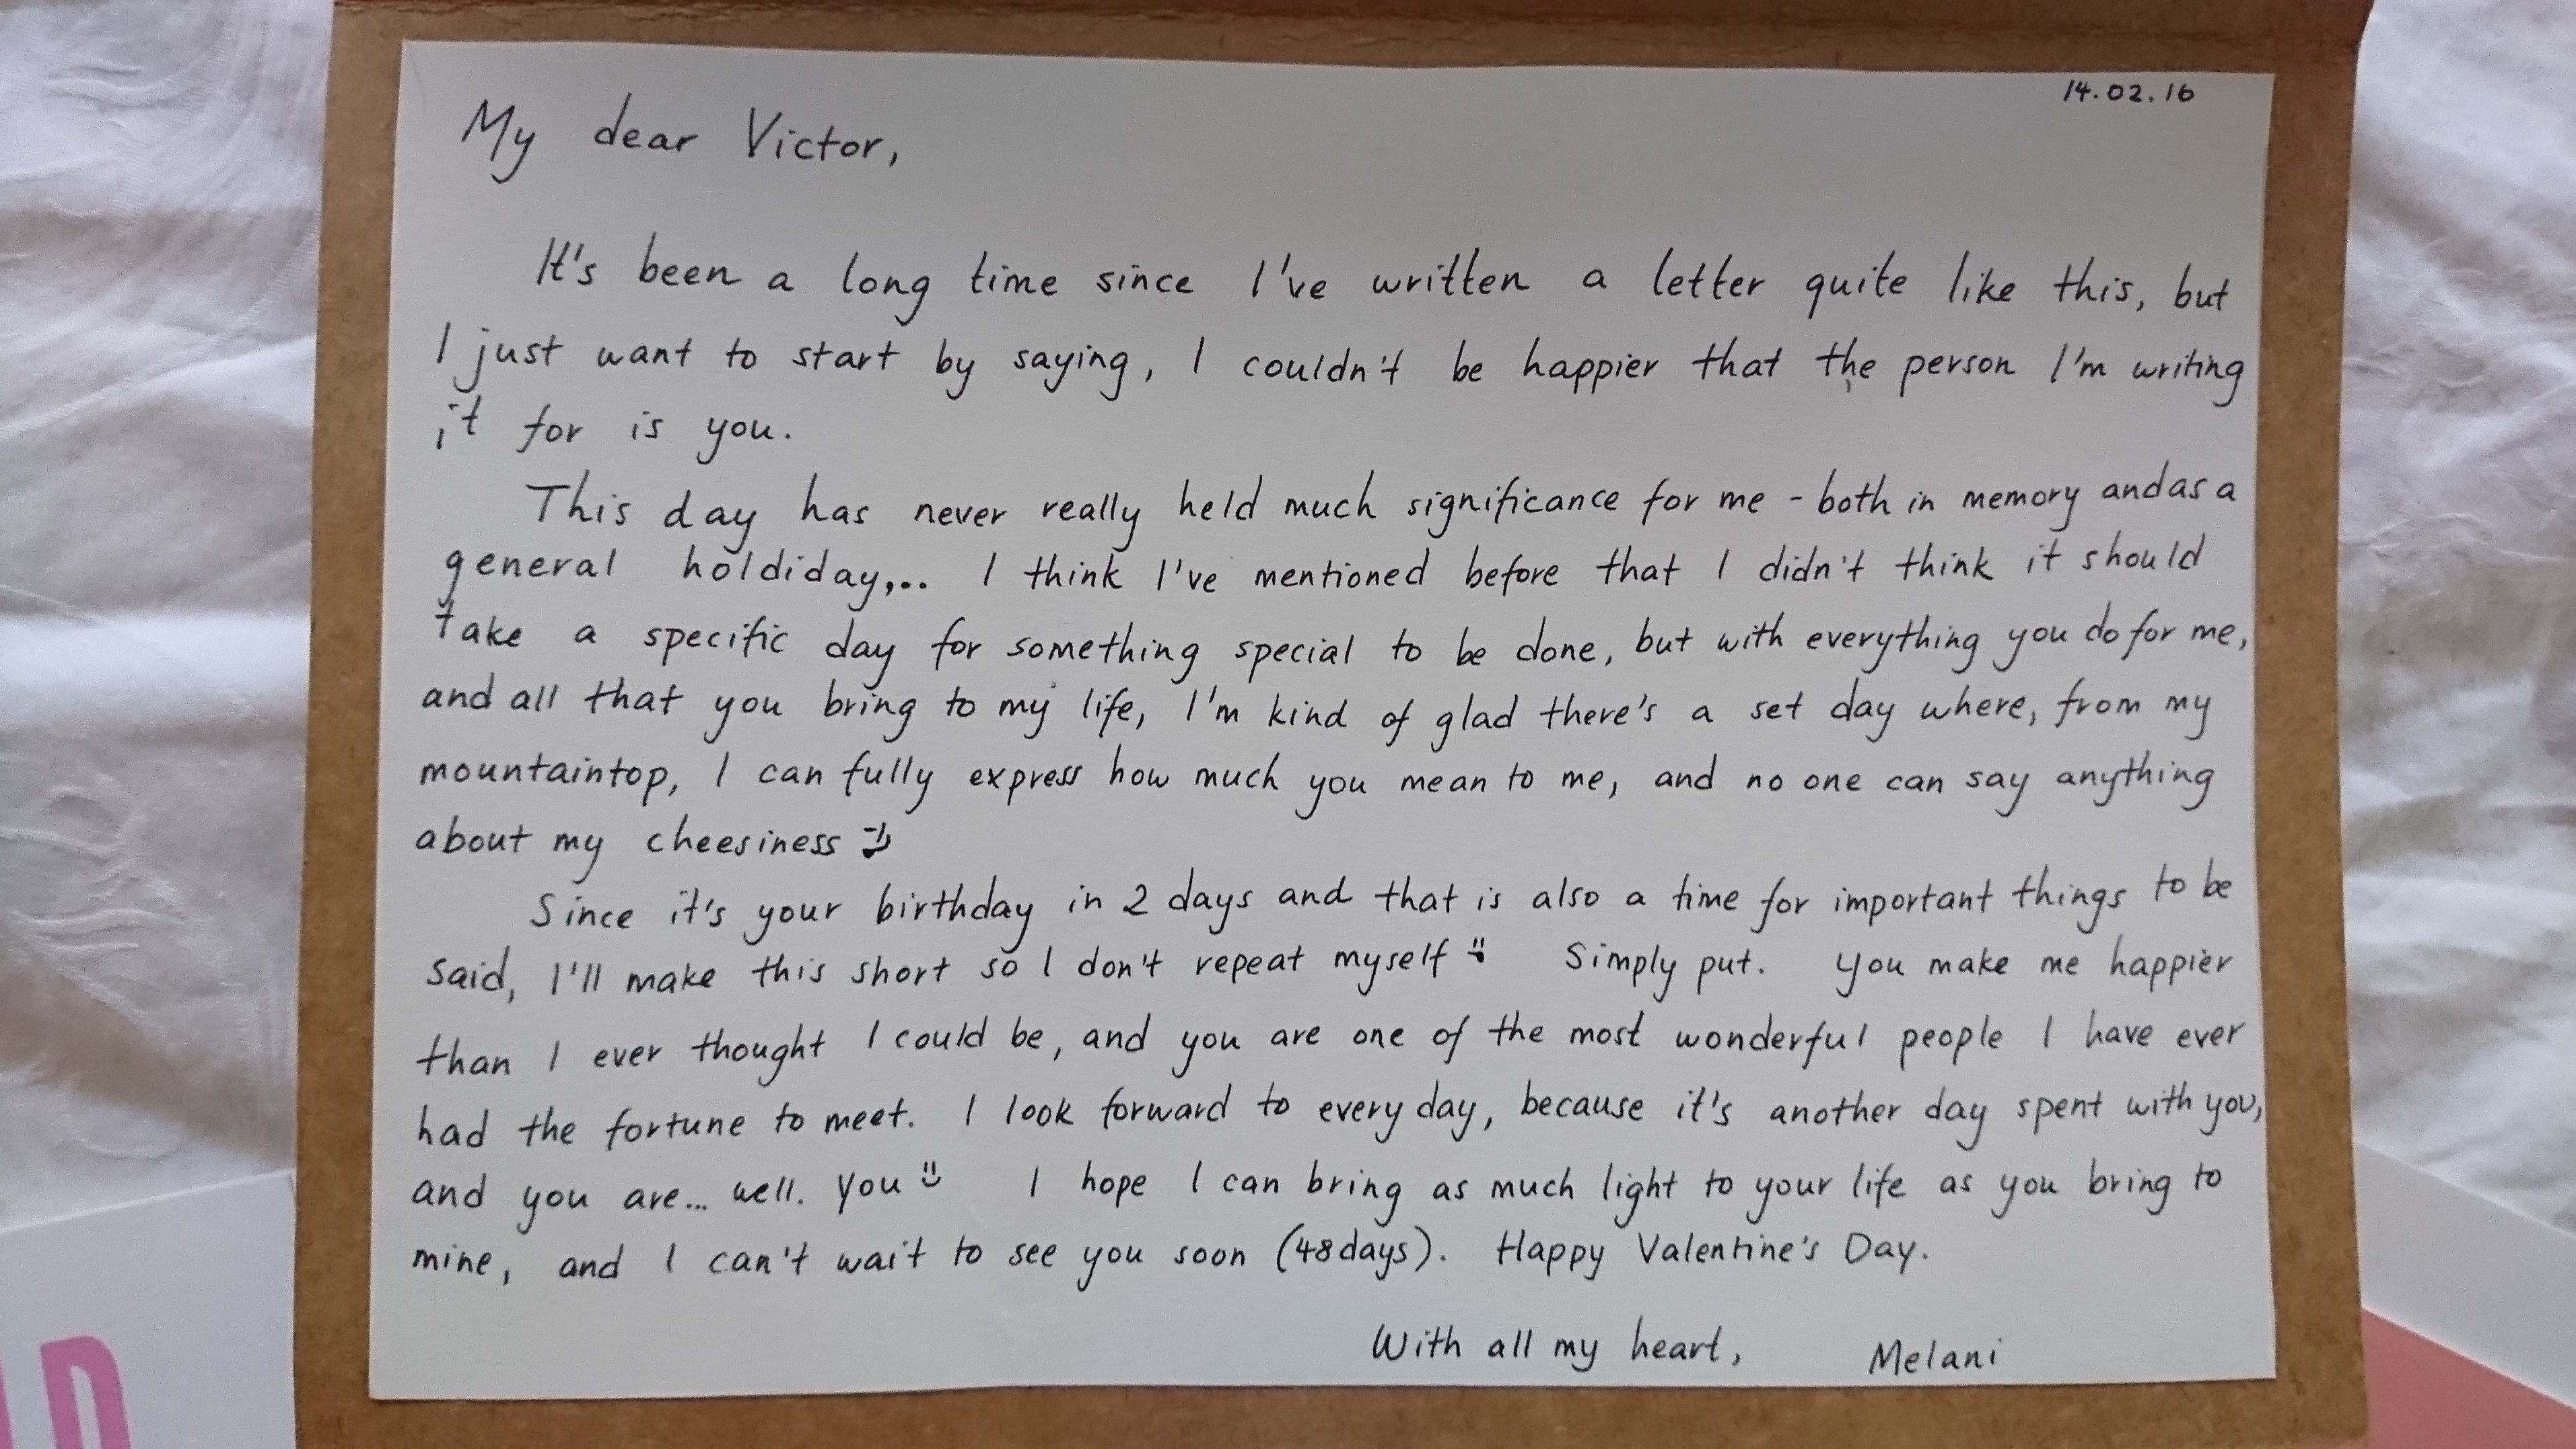 14.02.16
My dear Victor,
It's been a long time since I've written a letter quite like this, but
I just want to start by saying, I couldn't be happier that the person I'm writing
it for is you.
This day has never really held much significance for me - both in memory and as a
general holdiday,... I think I've mentioned before that I didn't think it should
take a specific day for something special to be done, but with everything you do for me,
and all that you bring to my life, I'm kind of glad there's a set day where, from my
mountaintop, I can fully express how much you mean to me, and no one can say anything
about my cheesiness :)
Since it's your birthday in 2 days and that is also a time for important things to be
said, I'll make this short so I don't repeat myself :) Simply put. You make me happier
than I ever thought I could be, and you are one of the most wonderful people I have ever
had the fortune to meet. I look forward to every day, because it's another day spent with you,
and you are... well. You :) I hope I can bring as much light to your life as you bring to
mine, and I can't wait to see you soon (48 days). Happy Valentine's Day.
With all my heart, Melani